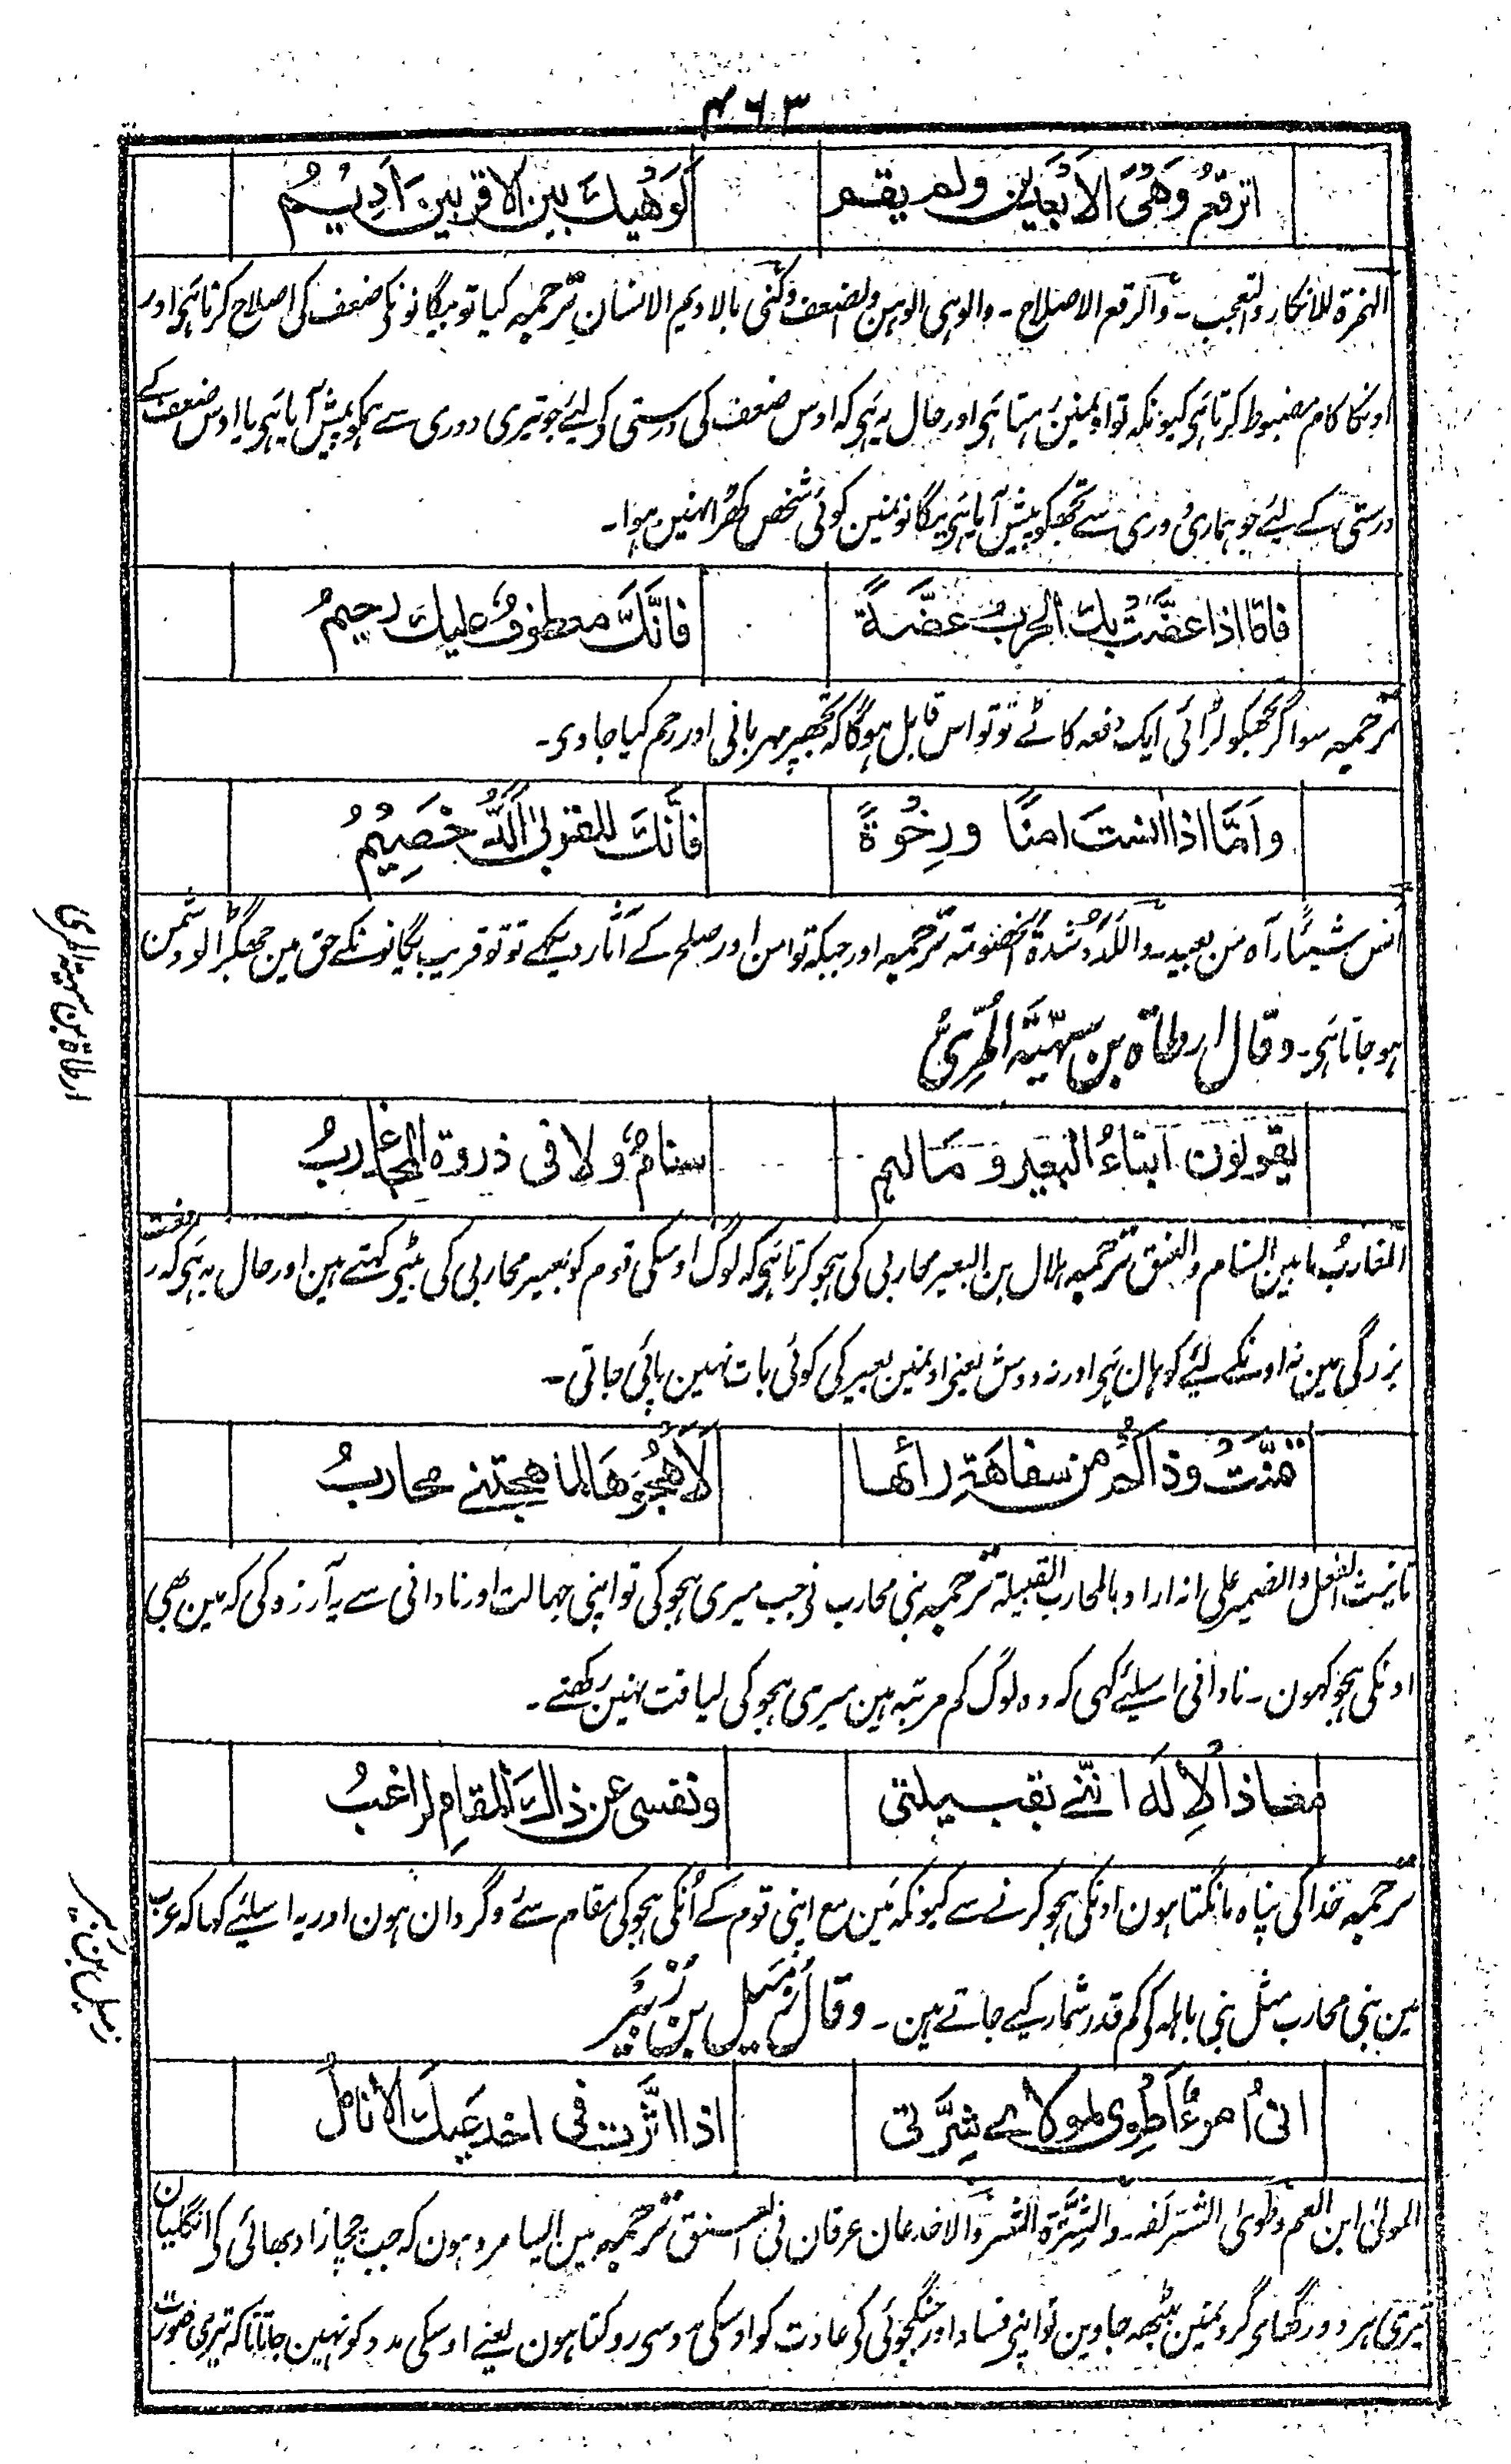 ۴۶۳
اترقعُ وَهْىَ الاَبْعَدِين ولم يقم لَوَهْيِكَ بين الاقربين اَدِيْمُ
الہمزۃ للانکار والتعجب ۔ والرقع الاصلاح ۔ والوہی الوہن والضعف وکنی بالادیم الانسان ترجمہ کیا تو بیگانونکی ضعف کی اصلاح کرتا ہی اور
اونکا کام مضبوط کرتا ہی کیونکہ تو اونمین رہتا ہی اور حال یہ ہی کہ اوس ضعف کی درستی کی لیئے جو تیری دوری سے ہمکو پیش آیا ہی یا اوس ضعف کے
درستی کے لیئے جو ہماری دوری سے تجھکو پیش آیا ہی یگانونمین کوئی شخص کھڑا نہین ہوا ۔
فامّا اذا عضَّتْ بك الحربُ عضّةً فانَّكَ معطوفٌ عليك رحيمُ
ترجمہ سو اگر تجھکو لڑائی ایک دفعہ کاٹے تو تو اس قابل ہوگا کہ تجھپر مہربانی اور رحم کیا جاوی ۔
واَمّا اذا انستَ امنًا ورِخْوَةً فانَّكَ للقربىٰ اَلَدُّ خَصِيْمُ
آنس شیئًا رآہ من بعید ۔ والالد شدۃ الخصومتہ ترجمہ اور جبکہ تو امن اور صلح کے آثار دیکھے تو تو قریب یگانونکے حق مین جھگڑالو دشمن
ہو جاتا ہی ۔ وقال ارطاة بن سهيّة المُرّىُّ
ارطاة بن سهية المرى
يقولون ابناءُ البعير و مالهم سنامٌ ولا فى ذروة المغاربُ
المغاربُ ما بین السنام والعنق ترجمہ ہلال بن البعیر محاربی کی ہجو کرتا ہی کہ لوگ اوسکی قوم کو بعیر محاربی کی بیٹی کہتے ہین اور حال یہ ہی کہ رفعت
بزرگی مین نہ اونکے لیئے کوہان ہی اور نہ دوش یعنی اونمین بعیر کی کوئی بات نہین پائی جاتی ۔
تمنَّتْ وذاكُم من سفاهةِ رائها لَاَهْجُوَهَا لما هجتنى محاربُ
تانیث الفعل والضمیر علی انہ اراد بالمحارب القبیلۃ ترجمہ بنی محارب نی جب میری ہجو کی تو اپنی جہالت اور نادانی سے یہ آرزو کی کہ مین بھی
اونکی ہجو کہون ۔ نادانی اسلیئے کہی کہ وہ لوگ کم مرتبہ ہین میری ہجو کی لیاقت نہین رکھتے ۔
معاذ الاِلٰه اننى بقبيلتى ونفسى عن ذاك المقامِ لراغبُ
ترجمہ خدا کی پناہ مانگتا ہون اونکی ہجو کرنے سے کیونکہ مین مع اپنی قوم کے اُنکی ہجو کی مقام سے روگردان ہون اور یہ اسلیئے کہا کہ عرب
مین بنی محارب مثل بنی باہلہ کی کم قدر شمار کیے جاتے ہین ۔ وقال زُمَيل بن زُبَيْر
زميل بن
انى امرءٌ اَطوِى لمولاى شِرَّتى اذا اثَّرت فى اخدعيك الاناملُ
المولی ابن العم وطوی الشئ لفہ ۔ والشِّرّۃ الشر والاخدعان عرقان فی العنق ترجمہ مین ایسا مرد ہون کہ جب چچازاد بھائی کی انگلیان
تیری ہر دو رگہای گردنمین بیٹھ جاوین تو اپنی فساد اور جنگجوئی کی عادت کو اوسکی مدد سی روکتا ہون یعنے اوسکی مدد کو نہین جاتا تاکہ تیری ضرورت